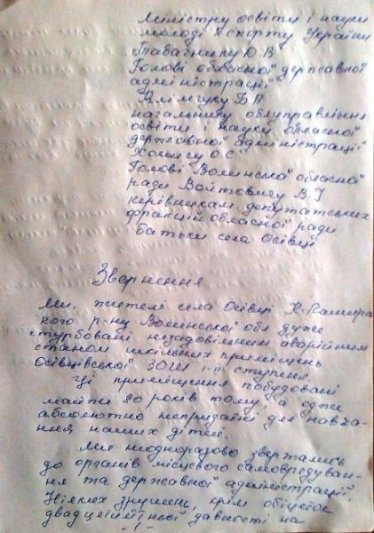 Міністру освіти і науки
молоді і спорту України
Табачнику Ю.В
Голові обласної державної
адміністрації
Клімчуку Б.П.
начальнику облуправління
освіти і науки обласної
державної адміністрації
О.С
Голові Волинської обласної
ради Войтовичу В.І
керівникам депутатських
фракцій обласної ради
батьки села Осівці
Звернення
Ми, жителі села Осівці К-Кашира
ного р-ну Волинської обл дуже
стурбовані незадовільним аварійним
станом шкільних приміщень
Осівцівської ЗОШ І-ІІ ступеня
Ці приміщення побудовані
майже 80 років тому, а одже
абсолютно непридатні для навча-
ння наших дітей.
Ми неодноразово звертались
до органів місцевого самоврядуван-
ня та державної адміністрації
Ніяких зрушень, крім обіцянок
двадцятилітньої давності на
-1-